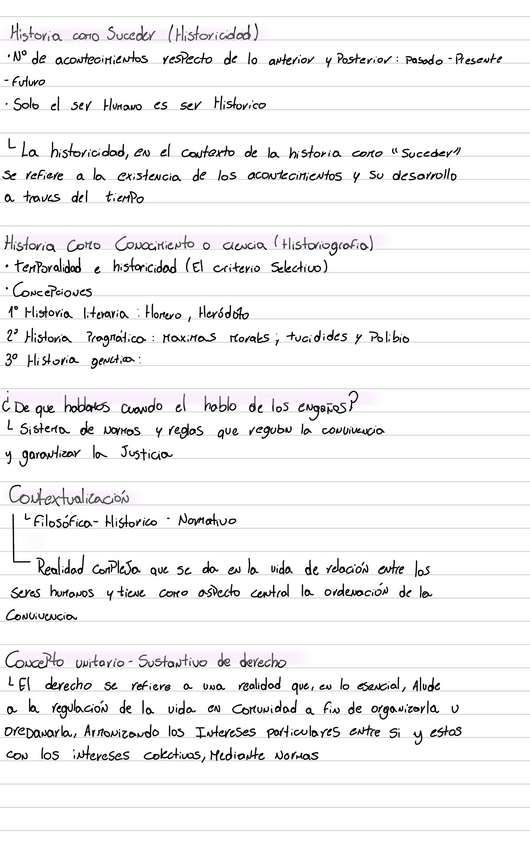 Historia como Suceder (Historicidad)
· Nº de acontecimientos respecto de lo anterior y Posterior: pasado - Presente
- Futuro
· Solo el ser Humano es ser Historico
└ La historicidad, en el contexto de la historia como "Suceder"
se refiere a la existencia de los acontecimientos y su desarrollo
a traves del tiempo
Historia Como Conocimiento o ciencia (Historiografia)
· temporalidad e historicidad (El criterio Selectivo)
· Concepciones
1º Historia literaria: Homero, Heródoto
2º Historia Pragmática: Maximas Morales; tucidides y Polibio
3º Historia genetica:
¿De que hablamos cuando el hablo de los engaños?
└ Sistema de normas y reglas que regulan la convivencia
y garantizar la Justicia
Contextualización
└ Filosófica - Historico - Normativo
Realidad compleja que se da en la vida de relación entre los
seres humanos y tiene como aspecto central la ordenación de la
Convivencia
Concepto unitario - Sustantivo de derecho
└ El derecho se refiere a una realidad que, en lo esencial, Alude
a la regulación de la vida en comunidad a fin de organizarla u
oredanarla, Armonizando los Intereses particulares entre si y estos
con los intereses colectivos, Mediante Normas